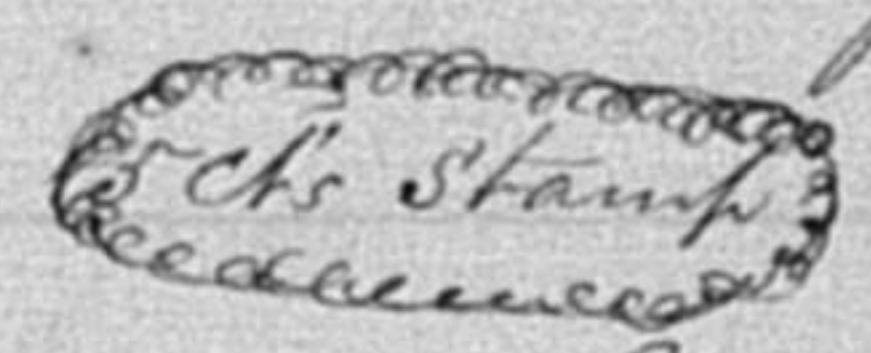 5 ct's Stamp